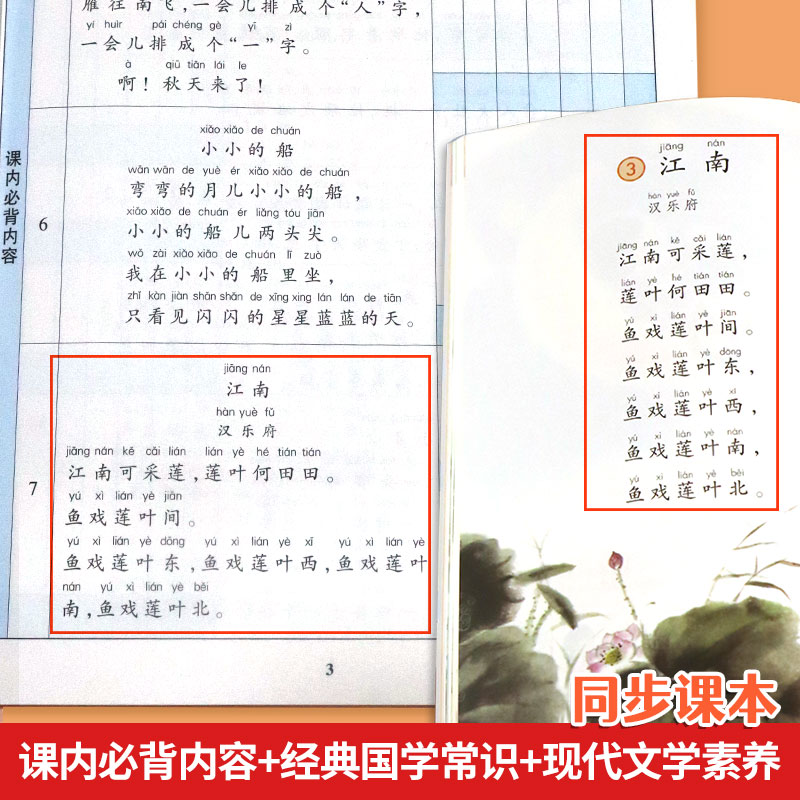 雁往南飞,一会儿排成个“人”字,
yí huìr pái chéng gè yī zì
一会儿排成个“一”字。
à qiū tiān lái le
啊!秋天来了!
课内必背内容
6
xiǎo xiǎo de chuán
小小的船
wān wān de yuè ér xiǎo xiǎo de chuán
弯弯的月儿小小的船,
xiǎo xiǎo de chuán ér liǎng tóu jiān
小小的船儿两头尖。
wǒ zài xiǎo xiǎo de chuán lǐ zuò
我在小小的船里坐,
zhǐ kàn jiàn shǎn shǎn de xīng xing lán lán de tiān
只看见闪闪的星星蓝蓝的天。
7
jiāng nán
江南
hàn yuè fǔ
汉乐府
jiāng nán kě cǎi lián lián yè hé tián tián
江南可采莲,莲叶何田田。
yú xì lián yè jiān
鱼戏莲叶间。
yú xì lián yè dōng yú xì lián yè xī yú xì lián yè
鱼戏莲叶东,鱼戏莲叶西,鱼戏莲叶
nán yú xì lián yè běi
南,鱼戏莲叶北。
3
jiāng nán
3 江南
hàn yuè fǔ
汉乐府
jiāng nán kě cǎi lián
江南可采莲,
lián yè hé tián tián
莲叶何田田。
yú xì lián yè jiān
鱼戏莲叶间。
yú xì lián yè dōng
鱼戏莲叶东,
yú xì lián yè xī
鱼戏莲叶西,
yú xì lián yè nán
鱼戏莲叶南,
yú xì lián yè běi
鱼戏莲叶北。
同步课本
课内必背内容+经典国学常识+现代文学素养